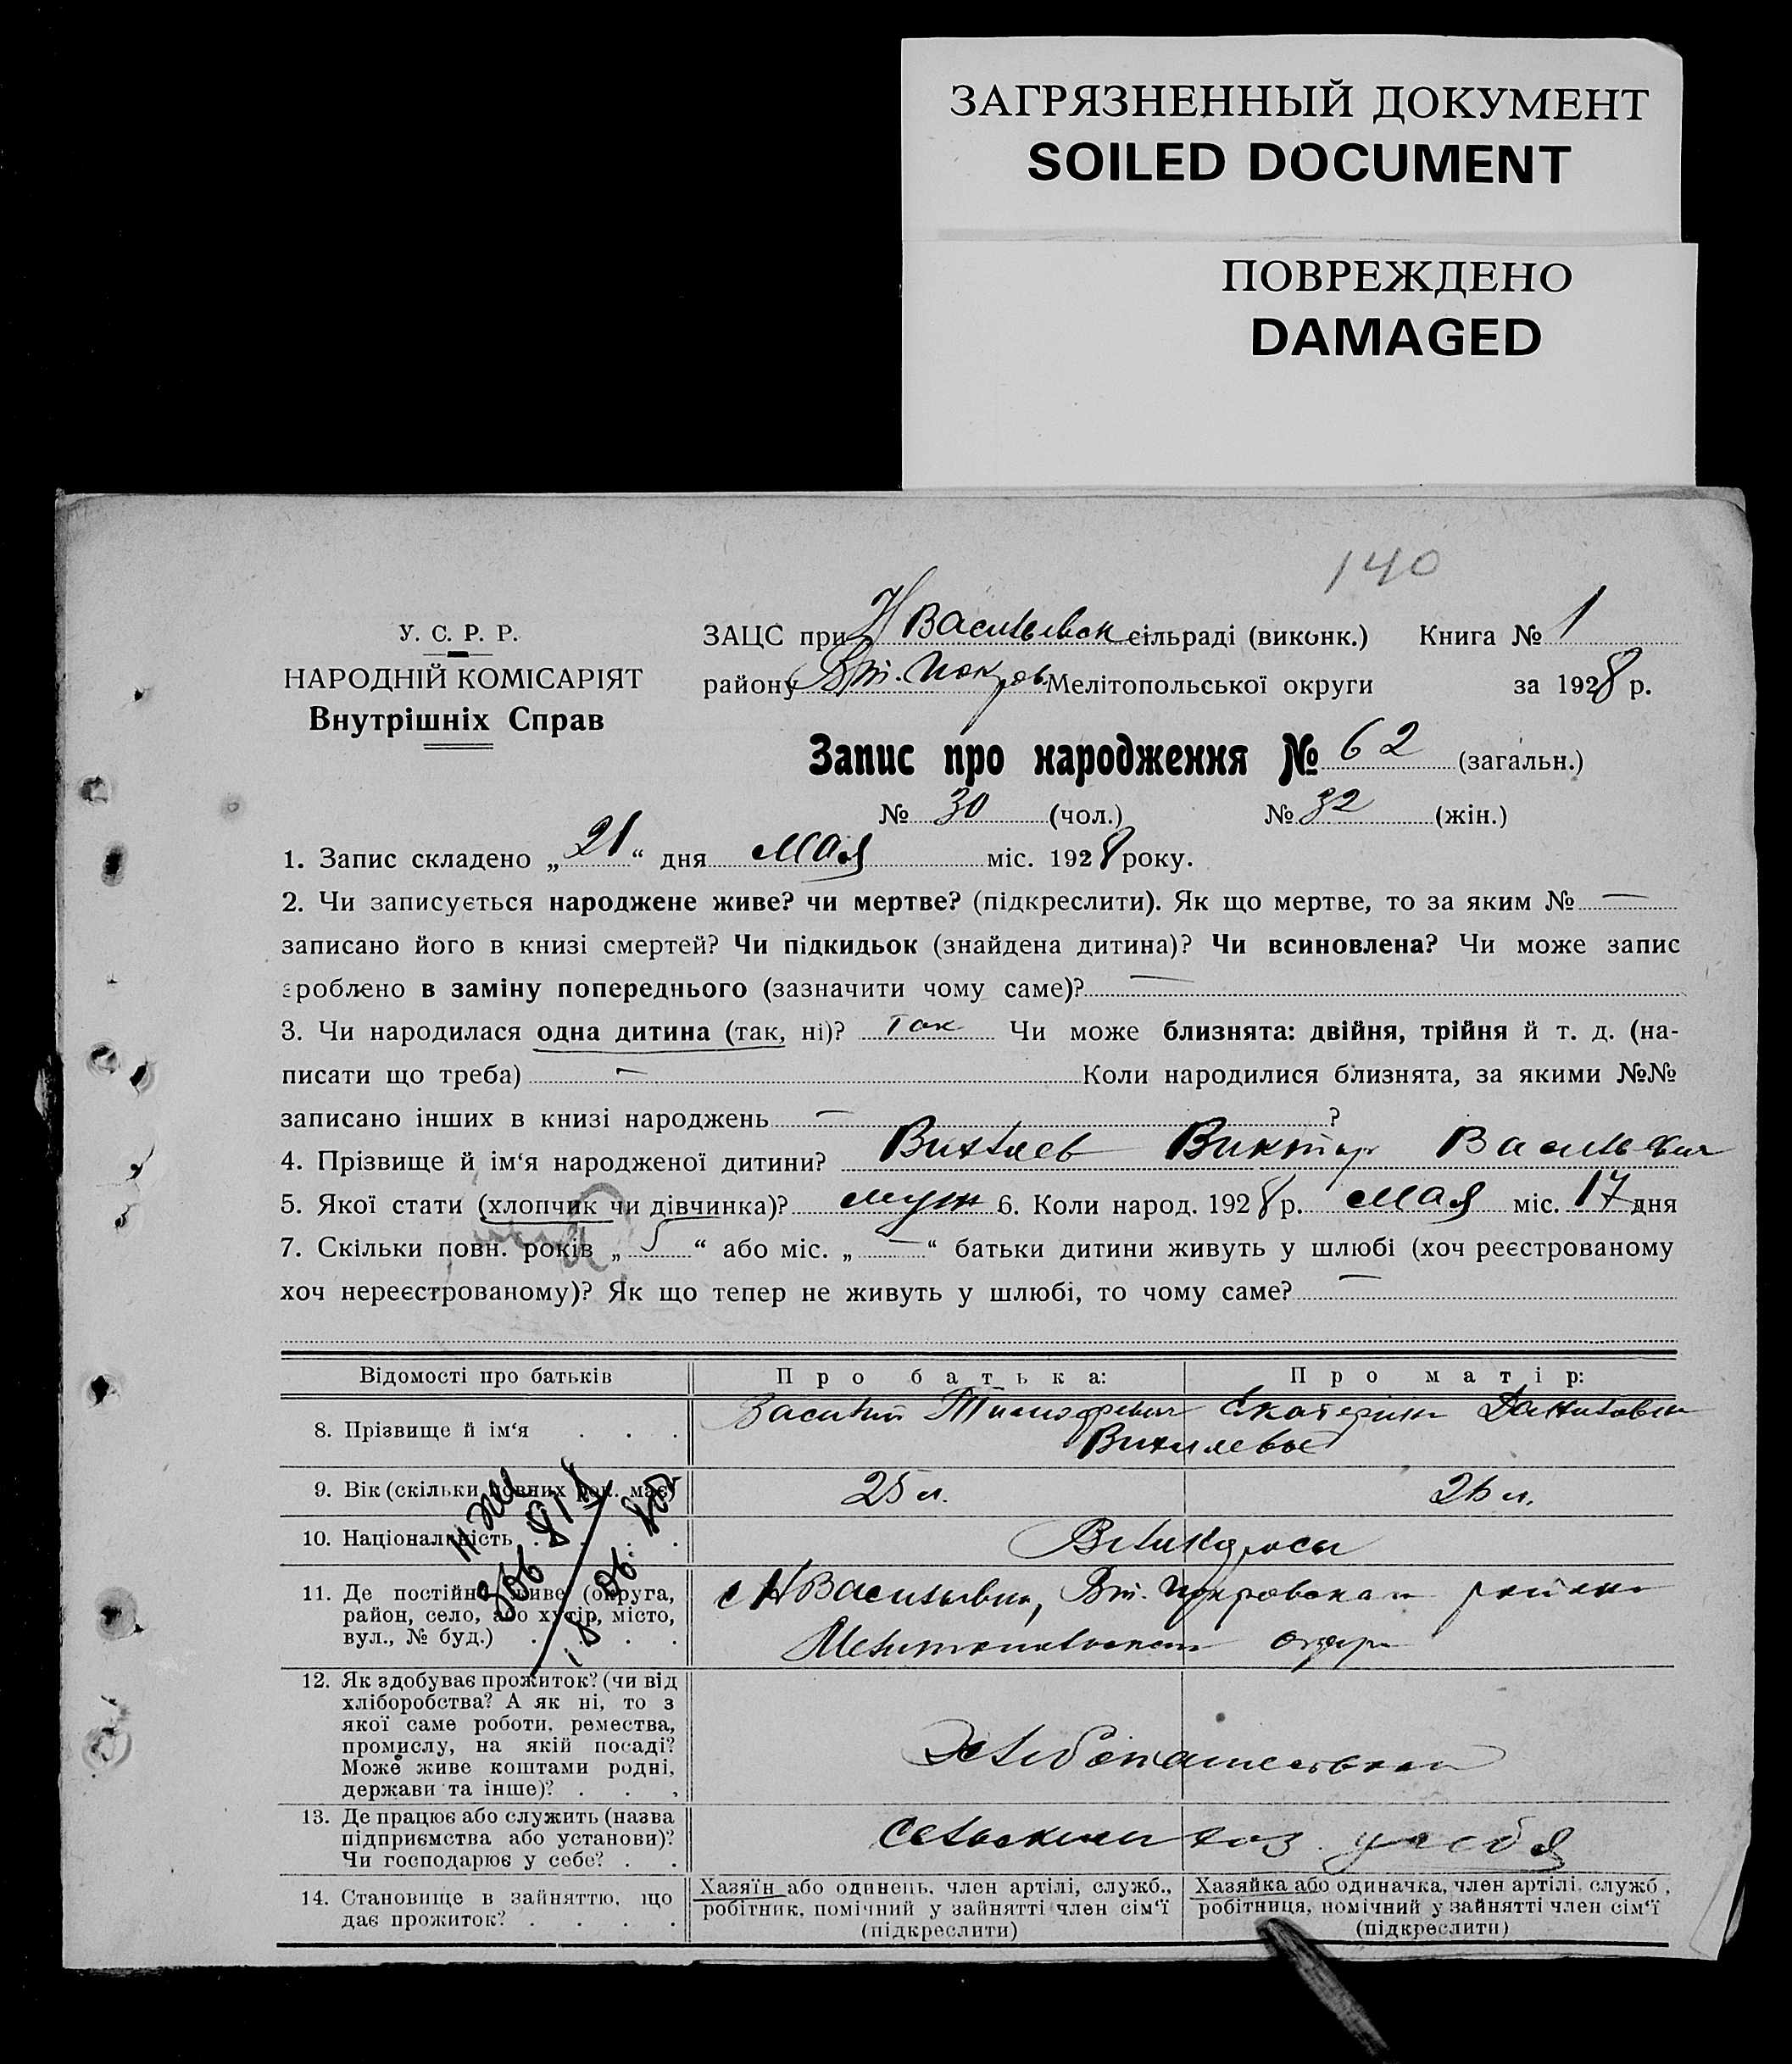 ЗАГРЯЗНЕННЫЙ ДОКУМЕНТ
SOILED DOCUMENT
ПОВРЕЖДЕНО
DAMAGED
140
У. С. Р. Р.
НАРОДНІЙ КОМІСАРІЯТ
Внутрішніх Справ
ЗАЦС при Н Васильевск сільраді (виконк.) Книга № 1
району Вт. Покров Мелітопольської округи за 1928 р.
Запис про народження № 62 (загальн.)
№ 30 (чол.) № 32 (жін.)
1. Запис складено „21“ дня мая міс. 1928 року.
2. Чи записується народжене живе? чи мертве? (підкреслити). Як що мертве, то за яким № —
записано його в книзі смертей? Чи підкидьок (знайдена дитина)? Чи всиновлена? Чи може запис
зроблено в заміну попереднього (зазначити чому саме)? —
3. Чи народилася одна дитина (так, ні)? так Чи може близнята: двійня, трійня й т. д. (на-
писати що треба) — Коли народилися близнята, за якими №№
записано інших в книзі народжень — ?
4. Прізвище й ім‘я народженої дитини? Виктор Васильевич
5. Якої стати (хлопчик чи дівчинка)? муж 6. Коли народ. 1928 р. мая міс. 17 дня
7. Скільки повн. років „5“ або міс. „—“ батьки дитини живуть у шлюбі (хоч реєстрованому
хоч нереєстрованому)? Як що тепер не живуть у шлюбі, то чому саме? —
Відомості про батьків Про батька: Про матір:
8. Прізвище й ім‘я . . . Василий Екатерина Даниловна
9. Вік (скільки повних рок. має) 25 л. 26 л.
10. Національність . . . . Великороссы
11. Де постійно живе (округа, с Н Васильевка, Вт. Покровского района
район, село, або хутір, місто,
вул., № буд.) . . . . Мелитопольского округа
12. Як здобуває прожиток? (чи від
хліборобства? А як ні, то з
якої саме роботи, ремества,
промислу, на якій посаді? Хлебопашеством
Може живе коштами родні,
держави та інше)? . . .
13. Де працює або служить (назва
підприємства або установи)? сельским хоз. у себя
Чи господарює у себе? . .
14. Становище в зайняттю, що Хазяїн або одинець, член артілі, служб., Хазяйка або одиначка, член артілі, служб.,
дає прожиток? . . . . робітник, помічний у зайнятті член сім‘ї робітниця, помічний у зайнятті член сім‘ї
(підкреслити) (підкреслити)